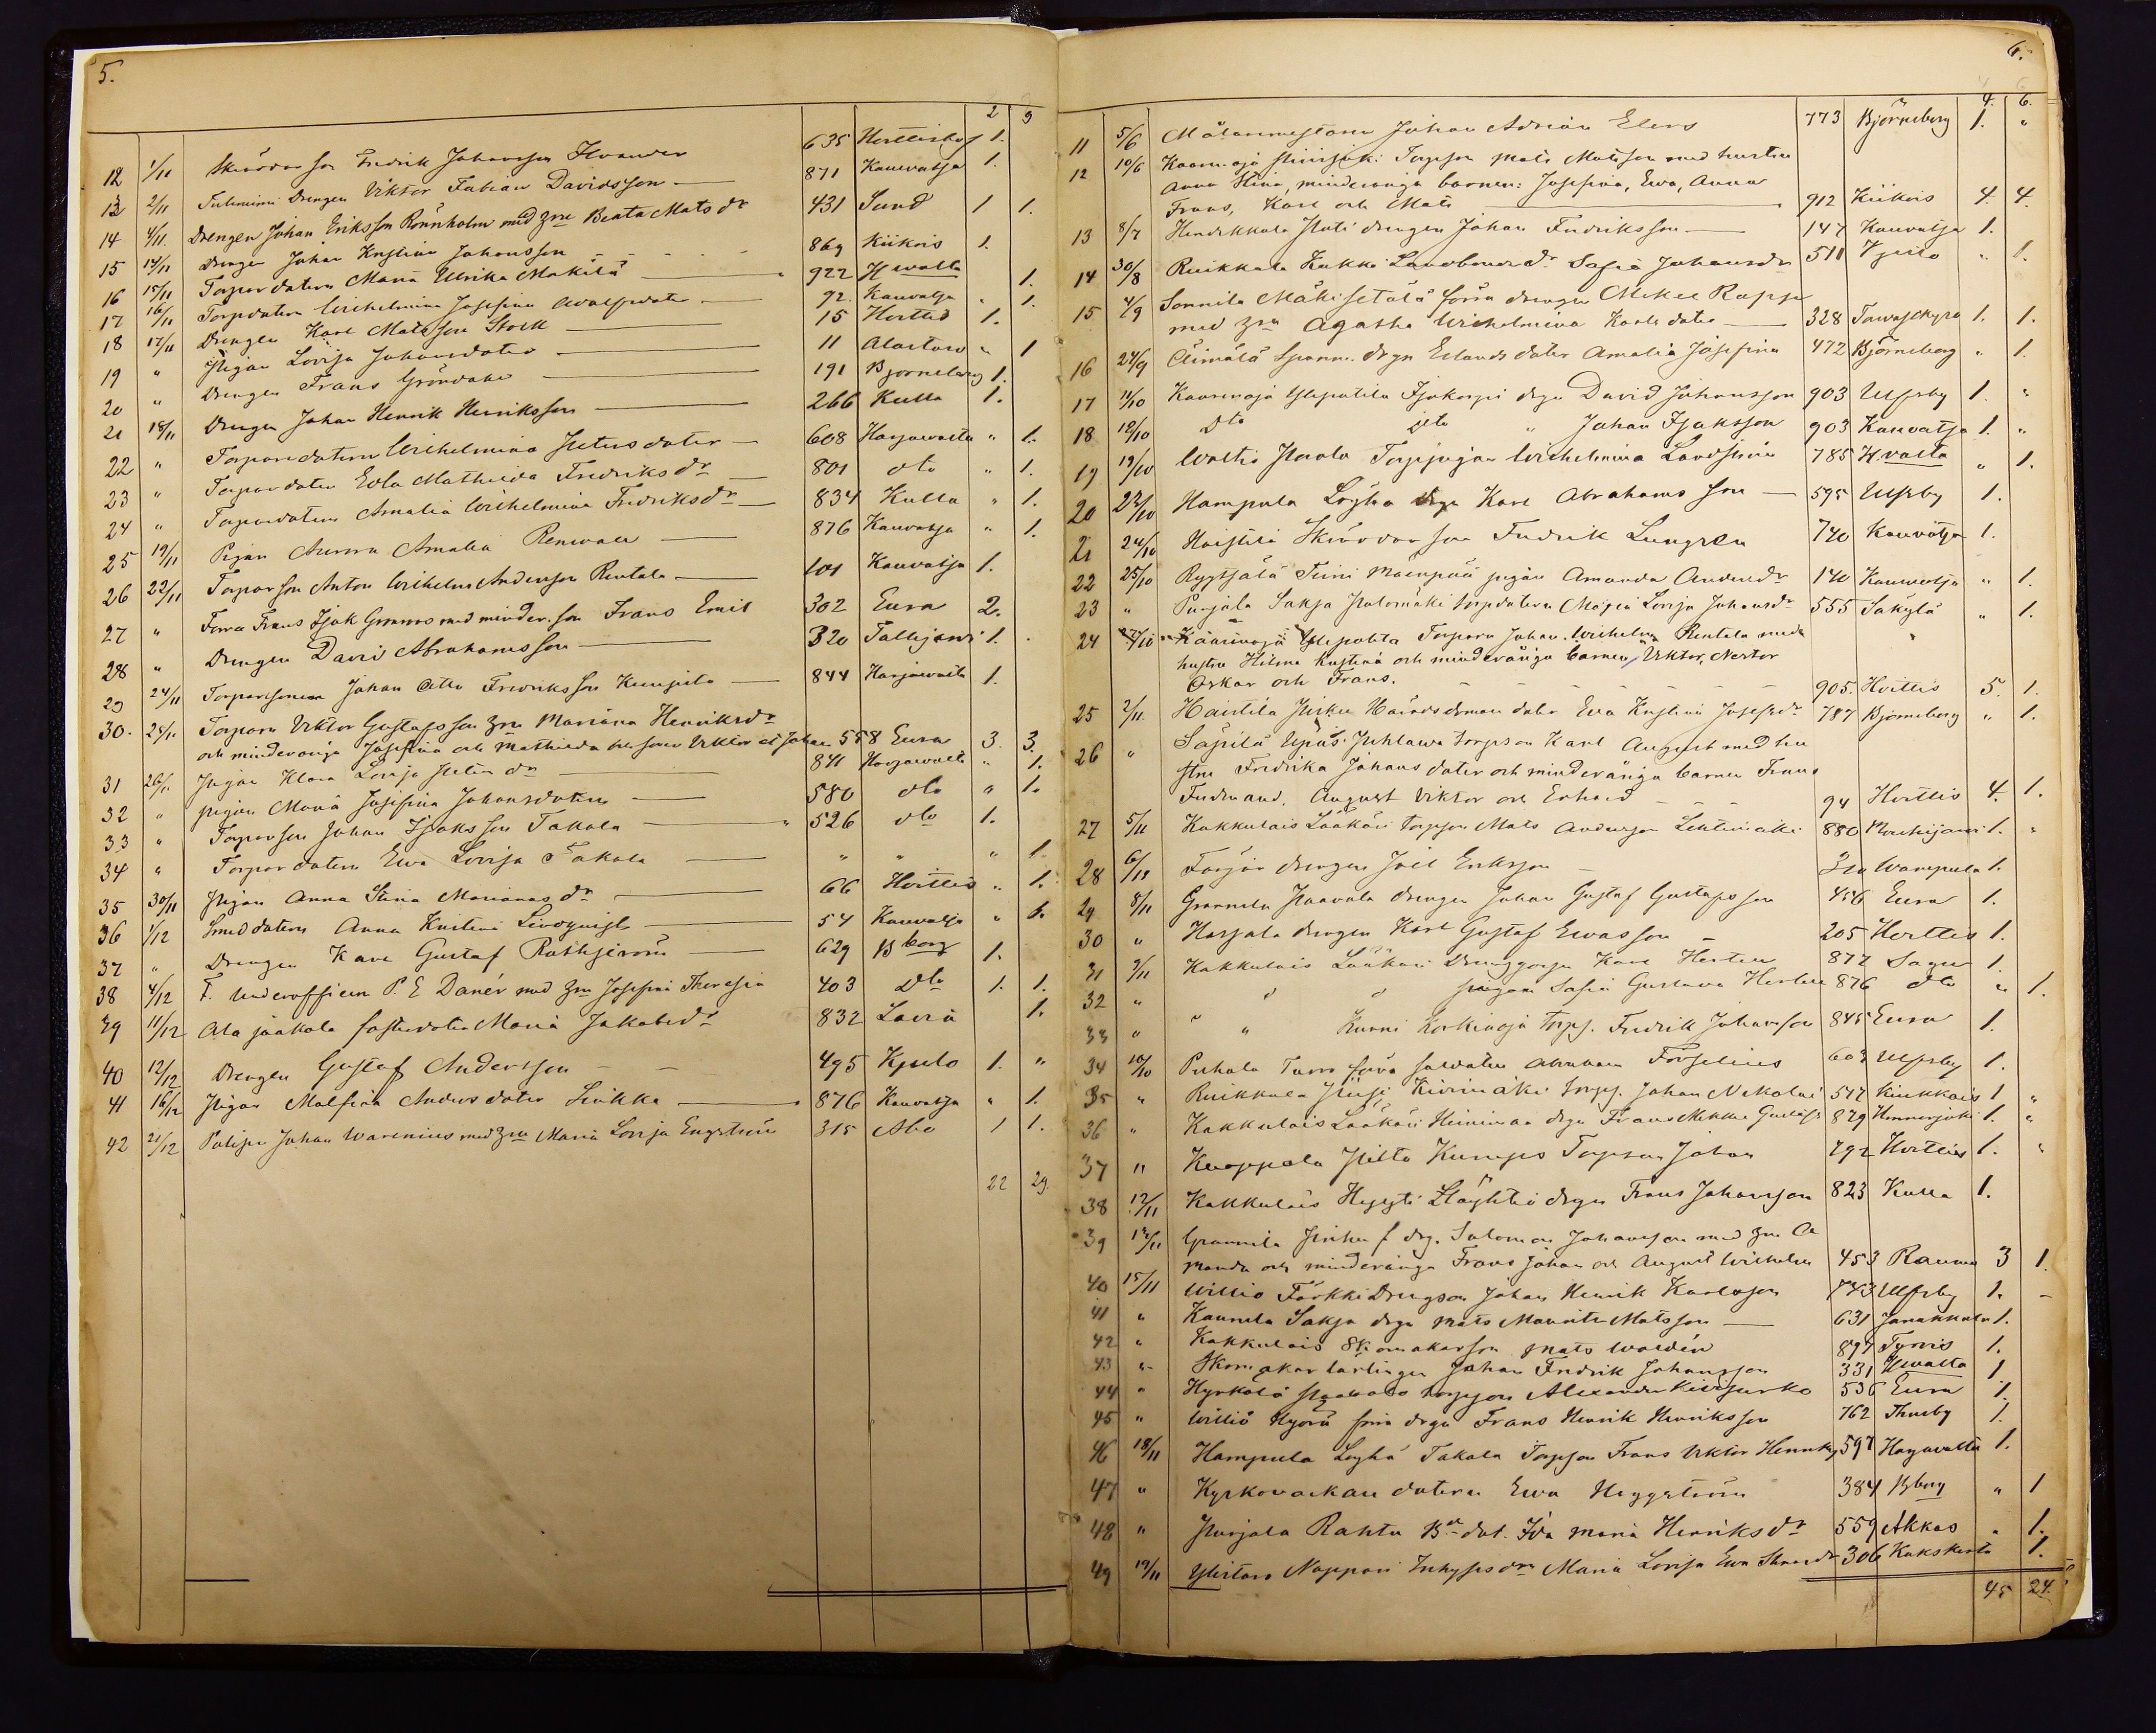 5.
2 9
12 1/11 Skräddar son Fredrik Johansson Elvander 635 Hvittisbof 1.
13 2/11 Tulimimi Drengen Viktor Fabian Davidsson 871 Kauvatsa 1.
14 4/11 Drengen Johan Eriksson Rönnholm med hru Beata Mats dr 431 Sund 1 1.
15 14/11 Drengen Johan Kristian Johansson 869 Kiikois 1.
16 15/11 Torpardottern Maria Ulrika Mäkilä 922 Hvalta 1.
17 16/11 Torpdottern Wilhelmina Josefina Adolfsdotter 92 Kauvatsa " 1.
18 17/11 Drengen Karl Matsson Stork 15 Hvittis 1.
19 " Pigan Lovisa Johansdotter 11 Alastaro " 1
20 " Drengen Frans Gröndahl 191 Björneborg 1.
21 18/11 Drengen Johan Henrik Henriksson 266 Kulla 1.
22 " Torparedottern Wilhelmina Petersdotter 608 Harjavalta " 1.
23 " Torpardotter Edla Mathilda Fredriks dr 801 dto " 1.
24 " Torparedottern Amalia Wilhelmina Fredriks dr 834 Kulla " 1.
25 19/11 Pigan Aurora Amalia Renvall 876 Kauvatsa " 1.
26 22/11 Torparson Anton Wilhelm Andersson Rentala 101 Kauvatsa 1.
27 " Förra Frans Isak Granroos med minder. son Frans Emil 302 Eura 2.
28 " Drengen David Abrahamsson 320 Tattijärvi 1.
29 24/11 Torparsonen Johan Otto Fredriksson Kuusisto 844 Harjavalta 1.
30. 25/11 Torparn Viktor Gustafsson hru Mariana Henriksdr
och minderåriga Josefina och Mathilda och sonen Viktor o Johan 558 Eura 3. 3.
31 26/11 Pigan Klara Lovisa Peters dr 841 Harjavalta " 1.
32 " Pigan Maria Josefina Johansdotter 580 dto " 1.
33 " Torparson Johan Isaksson Takala 526 dto 1.
34 " Torpardottern Ewa Lovisa Takala " " " 1.
35 30/11 Pigan Anna Stina Marianas dr 66 Hvittis " 1.
36 1/12 Smeddottern Anna Kristina Lindqvist 54 Kauvatsa " 1.
37 " Drengen Karl Gustaf Rothström 629 Bborg 1.
38 4/12 F. Underofficern P. E Danér med hru Josefina Theresia 403 dto 1. 1.
39 11/12 Ala jaakola fosterdotter Maria Jakobsdr 832 Lavia 1.
40 12/12 Drengen Gustaf Andersson 495 Kjulo 1. "
41 16/12 Pigan Malfina Andersdotter Liukka 876 Kauvatsa " 1.
42 21/12 Polisen Johan Warenius med hru Maria Lovisa Engström 315 Åbo 1 1.
22 29.
6.
4. 6.
11 5/6 Målarmestaren Johan Adrian Elers 773 Björneborg 1. "
12 10/6 Kaarnoja Torpson Mats Matsson med hustru
Anna Stina, minderåriga barnen: Josefina, Ewa, Anna
Frans, Karl och Mats 912 Kiikois 4. 4.
13 8/7 Hendrikkala Pluti drengen Johan Fredriksson 147 Kauvatsa 1.
14 30/8 Ruikkala Kukki Landbondedr Sofia Johansdr 511 Kjulo " 1.
15 4/9 Sonnila Mäkisetälä förra drengen Mikel Rapp
med hru Agatha Wilhelmina Karlsdotter 328 Tavastkyro 1. 1.
16 27/9 Äimälä Spannm. drgn Erlandsdotter Amalia Josefina 472 Björneborg " 1.
17 11/10 Kaarnoja Ylipotila Isokorpi drgn David Johansson 903 Ulfsby 1. "
18 12/10 dto dto " Johan Isaksson 903 Kauvatsa 1. "
19 19/10 Waltis Paavola Torppigan Wilhelmina Lovisdotter 785 Hvalta " 1.
20 23/10 Hampula Löyhä drgn Karl Abrahamsson 595 Ulfsby 1.
21 24/10 Haistila Skräddarson Fredrik Lungren 740 Kauvatsa 1.
22 25/10 Ryytsälä Timi Mäenpää pigan Amanda Andersdr 140 Kauvatsa " 1.
23 " Puojala Saksa Palomäki torpdottern Maria Lovisa Johansdr 555 Säkylä " 1.
24 27/10 Kaarnoja Ylipotila Torparn Johan Wilhelm Rentala med
hustru Hilma Kristina och minderåriga barnen, Viktor, Nestor
Oskar och Frans. 905. Hvittis 5. 1.
25 2/11 Haistila Pirkko Häradsdomaredotter Eva Kristina Josefsdr 787 Björneborg " 1.
26 " Säpilä Upas Juhlava torpson Karl August med hu
stru Fredrika Johansdotter och minderåriga barnen Frans
Ferdinand, August Viktor och Erhard 94 Hvittis 4. 1.
27 5/11 Kakkulais Lääkäri torpson Mats Andersson Lehtimäki 880 Mouhijärvi 1. "
28 6/11 Torpar drengen Joel Eriksson 310 Wampula 1.
29 8/11 Grannila Paavola drengen Johan Gustaf Gustafsson 456 Eura 1.
30 " Harjala drengen Karl Gustaf Ewasson 205 Hvittis 1.
31 9/11 Kakkulais Lääkäri Drenggossen Karl Herten 877 Sagu 1.
32 " " " pigan Sofia Gustava Herten 876 dto " 1.
33 " " Kurni Korkinoja torps. Fredrik Johansson 845 Eura 1.
34 10/10 Puhala Turro förra soldaten Abraham Forselius 603 Ulfsby 1.
35 " Ruikkala Piispi Kivimäki torps. Johan Nikolai 547 Kiukkais 1 "
36 " Kakkulais Lääkäri Heinimaa drgn Frans Mikko Gustafs 879 Honnosjoki 1. "
37 " Kuoppala Pelto Kumpo Torpson Johan 792 Hvittis 1. "
38 12/11 Kakkulais Heggti Löyhti drgn Frans Johansson 823 Kulla 1.
39 13/11 Grannila Pirhu f drg. Salomon Johansson med hru A
manda och minderåriga Frans Johan och August Wilhelm 453 Raumo 3 1.
40 15/11 Willio Törkki Drengson Johan Henrik Karlsson 743 Ulfsby 1. -
41 " Kaunila Saksa drgn Mats Maurits Matsson 631 Janakkala 1.
42 " Kakkulais Skomakarson Mats Waldén 897 Tyrvis 1.
43 " Skomakar lärlingen Johan Fredrik Johansson 331 Hvalta 1
44 " Hyrkölä Paavola torpson Alexander Kivisurko 536 Eura 1.
45 " Williö Hyörä förra drgn Frans Henrik Henriksson 762 Thusby 1.
46 18/11 Hampula Löyhä Takala Torpson Frans Viktor Henriks 597 Harjavalta 1.
47 " Kyrkovaktare dottern Ewa Heggström 384 Bborg " 1
48 " Purjala Rantu Bde dot. Ida Maria Henriks dr 559 Akkas " 1.
49 19/11 Ylistaro Nappari Inhyses dr Maria Lovisa Ewa 306 Kakskerta 1.
45 24.